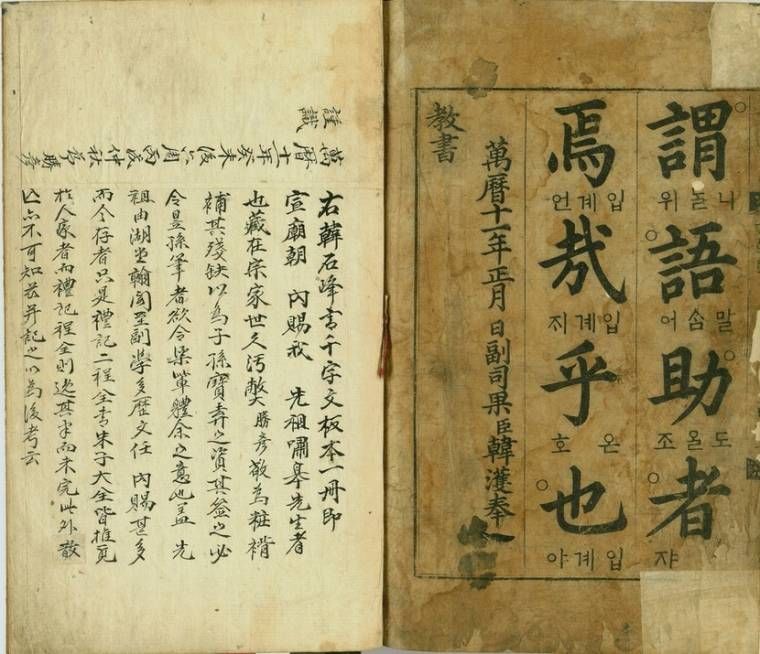 謂語助者
니ᄅᆞᆯ 위
말ᄉᆞᆷ 어
도올 조
쟈
焉哉乎也
입계 언
입계 ᄌᆡ
온 호
입계 야
萬曆十一年正月 日副司果臣韓濩奉
教書
右韓石峰書千字文板本一冊即
宣廟朝 內賜我 先祖嘯皐先生者
也藏在宗家世久汚弊勝彦敢爲粧褙
補其殘缺以爲子孫寶弆之資其簽之必
令昱孫筆者欲令渠輩體余之意也盖 先
祖由湖堂翰閣至副學多歷文任 內賜甚多
而今存者只是禮記二程全書朱子大全皆推
於人家者而禮記程全則逸其半而未完此外散
亡亦不可知茲并記之以爲後考云
萬曆十一年癸未後六周丙 仲秋 勝彦
謹識